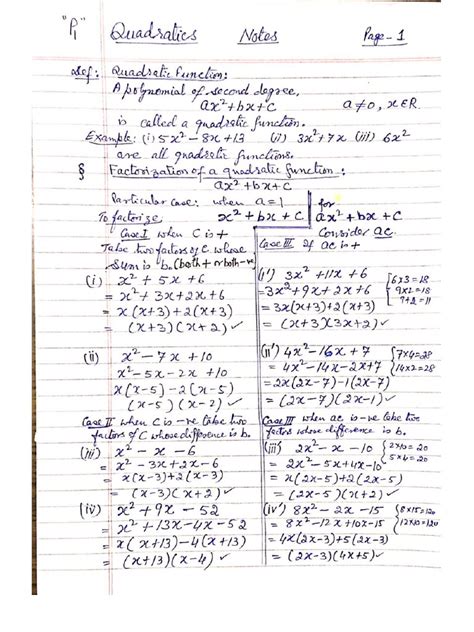 "P1" Quadratics Notes Page-1
Def: Quadratic Function:
A polynomial of second degree,
ax²+bx+c a≠0, x∈R.
is called a quadratic function.
Example: (i) 5x²-8x+13 (ii) 3x²+7x (iii) 6x²
are all quadratic functions.
§ Factorization of a quadratic function:
ax²+bx+c
Particular case: when a=1
To factorize x²+bx+c
Case I when c is +
Take two factors of c whose
sum is b. (both + or both -ve)
(i) x²+5x+6
= x²+3x+2x+6
= x(x+3)+2(x+3)
= (x+3)(x+2) ✓
(ii) x²-7x+10
x²-5x-2x+10
x(x-5)-2(x-5)
(x-5)(x-2) ✓
Case II when c is -ve take two
factors of c whose difference is b.
(iii) x²-x-6
= x²-3x+2x-6
= x(x-3)+2(x-3)
= (x-3)(x+2) ✓
(iv) x²+9x-52
= x²+13x-4x-52
= x(x+13)-4(x+13)
= (x+13)(x-4) ✓
for
ax²+bx+c
Consider ac.
Case III If ac is +
(i') 3x²+11x+6
= 3x²+9x+2x+6
= 3x(x+3)+2(x+3)
= (x+3)(3x+2) ✓
6×3=18
9×2=18
9+2=11
(ii') 4x²-16x+7
= 4x²-14x-2x+7
= 2x(2x-7)-1(2x-7)
= (2x-7)(2x-1) ✓
7×4=28
14×2=28
Case III when ac is -ve take two
factors whose difference is b.
(iii') 2x²-x-10
= 2x²-5x+4x-10
= x(2x-5)+2(2x-5)
= (2x-5)(x+2) ✓
2×10=20
5×4=20
(iv') 8x²-2x-15
= 8x²-12x+10x-15
= 4x(2x-3)+5(2x-3)
= (2x-3)(4x+5) ✓
8×15=120
12×10=120